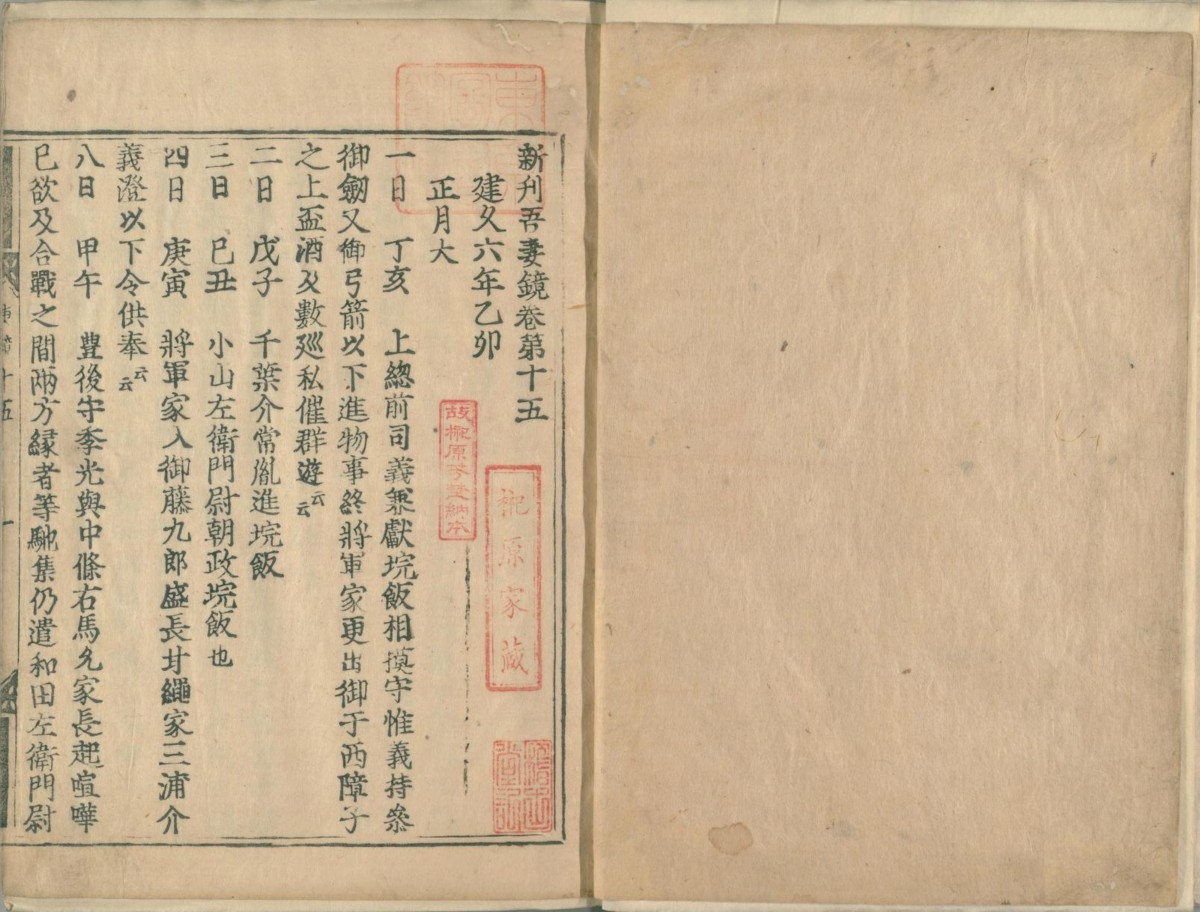 新刊吾妻鏡卷第十五
建久六年乙卯
正月大
一日　丁亥　上總前司義兼獻垸飯相摸守惟義持參
御劔又御弓箭以下進物事終將軍家更出御于西障子
之上盃酒及數廻私催群遊云云
二日　戊子　千葉介常胤進垸飯
三日　巳丑　小山左衛門尉朝政垸飯也
四日　庚寅　將軍家入御藤九郎盛長甘繩家三浦介
義澄以下令供奉云云
八日　甲午　豊後守季光與中條右馬允家長起喧嘩
巳欲及合戰之間兩方縁者等馳集仍遣和田左衛門尉
榊原家藏
故榊原芳埜納本